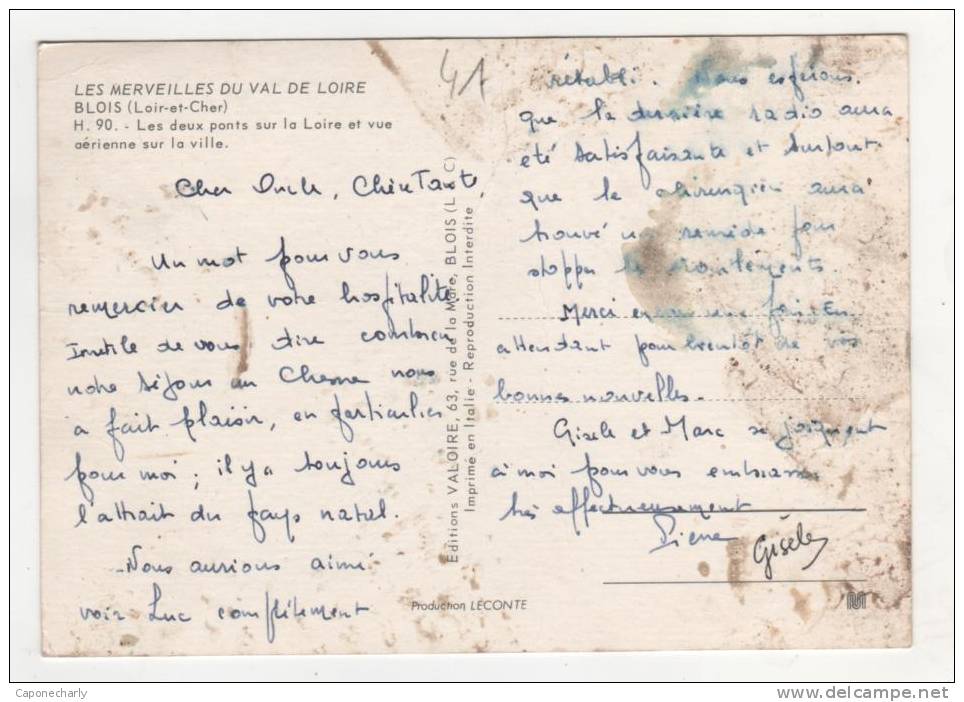 LES MERVEILLES DU VAL DE LOIRE
BLOIS (Loir-et-Cher)
H. 90. - Les deux ponts sur la Loire et vue
aérienne sur la ville.
41
Cher Oncle, Chère Tante,
Un mot pour vous
remercier de votre hospitalité
Inutile de vous dire combien
notre séjour en Chesne nous
a fait plaisir, en particulier
pour moi ; il y a toujours
l'attrait du pays natal.
Nous aurions aimé
voir Luc complètement
Production LECONTE
Editions VALOIRE, 63, rue de la Mare, BLOIS (L C)
Imprimé en Italie - Reproduction Interdite
rétabli. Nous espérons
que la dernière radio aura
été satisfaisante et surtout
que le chirurgien aura
trouvé un remède pour
stopper le
Merci encore une fois. En
attendant pour bientôt de vos
bonnes nouvelles.
Gisèle et Marc se joignent
à moi pour vous embrasser
très affectueusement
Pierre
Gisèle
M
Caponecharly
delcampe.net